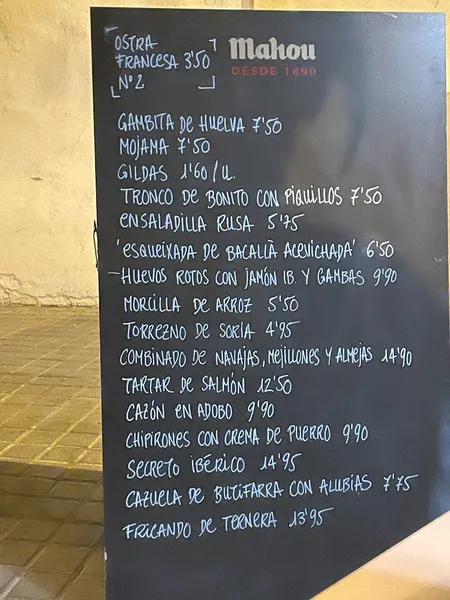 OSTRA
FRANCESA 3'50
Nº2
Mahou
DESDE 1890
GAMBITA DE HUELVA 7'50
MOJAMA 7'50
GILDAS 1'60/U.
TRONCO DE BONITO CON PIQUILLOS 7'50
ENSALADILLA RUSA 5'75
'ESQUEIXADA DE BACALLÀ ACEVICHADA' 6'50
-HUEVOS ROTOS CON JAMÓN IB. Y GAMBAS 9'90
MORCILLA DE ARROZ 5'50
TORREZNO DE SORIA 4'95
COMBINADO DE NAVAJAS, MEJILLONES Y ALMEJAS 14'90
TARTAR DE SALMÓN 12'50
CAZÓN EN ADOBO 9'90
CHIPIRONES CON CREMA DE PUERRO 9'90
SECRETO IBÉRICO 14'95
CAZUELA DE BUTIFARRA CON ALUBIAS 7'75
FRICANDO DE TERNERA 13'95